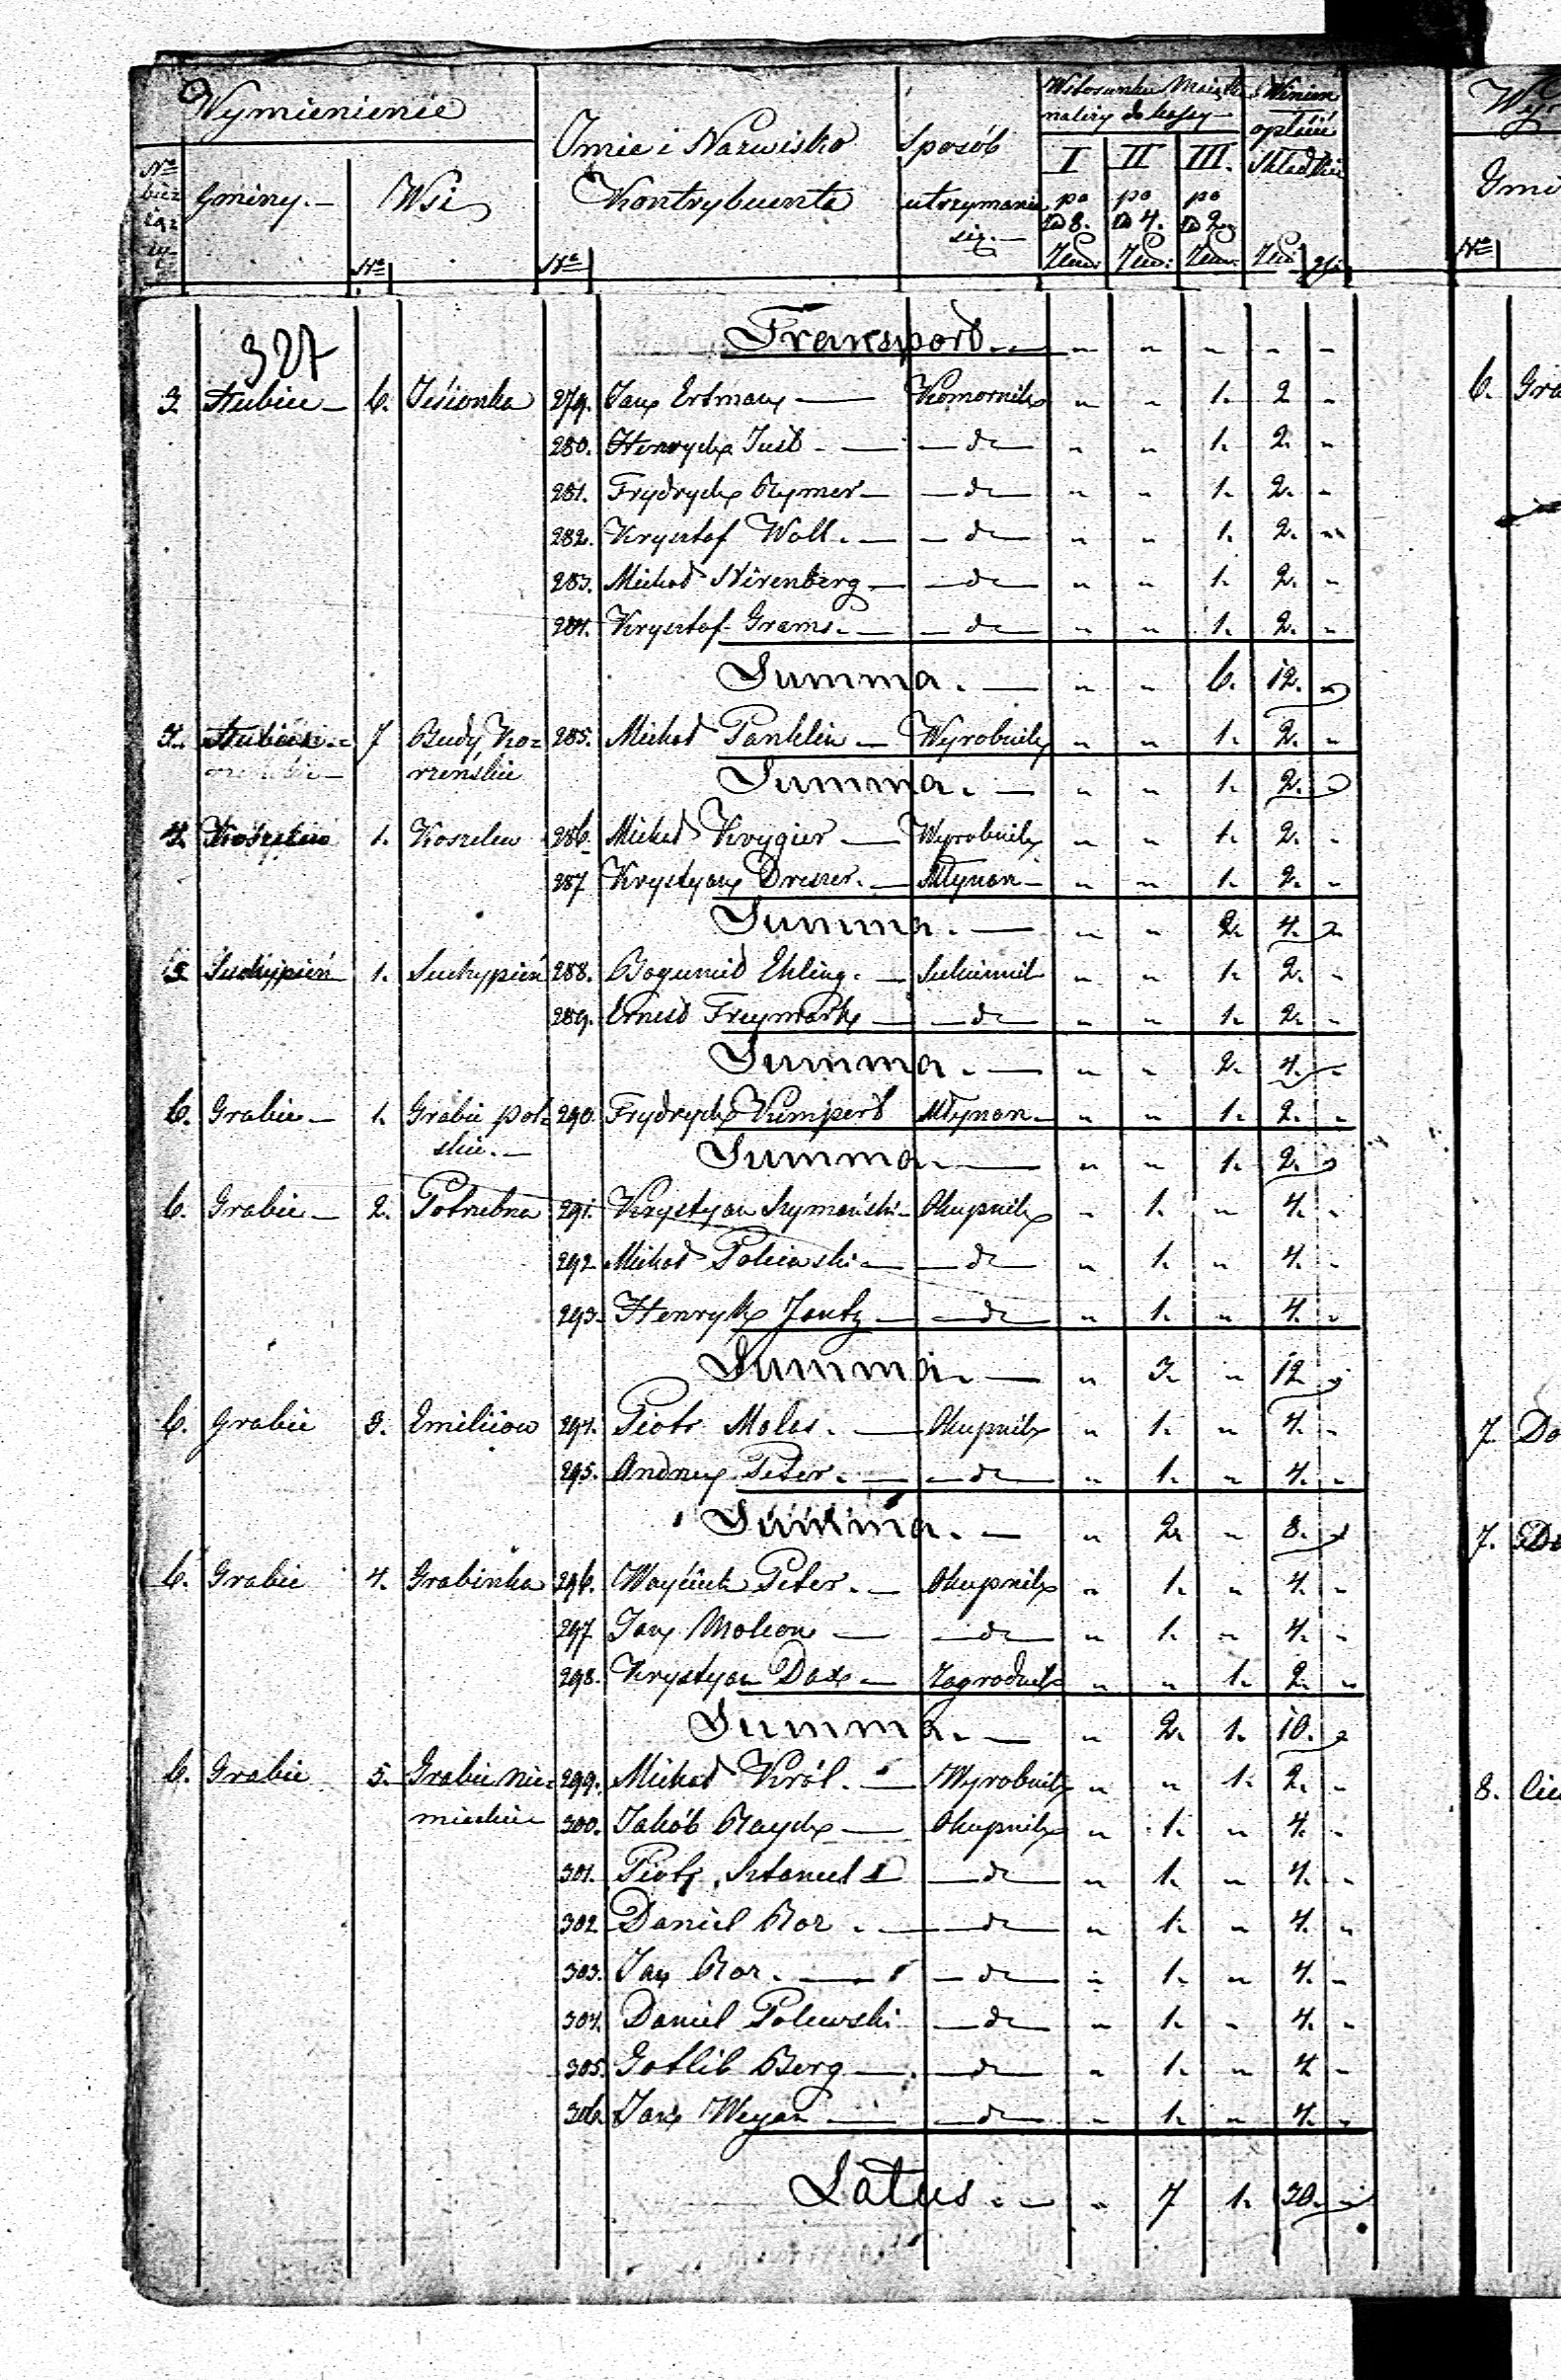 Wymienienie
Imie i Nazwisko
Kontrybuenta
Sposób
utrzymania
się.—
W stosunku Maiątk
należy do klassy
Winien
opłacić
Składki
Gminy.—
Wsi
I II III.
po po po
8. 4. 2.
№ №
327
Transport.— " " " " "
3. Słubice— 6. Jesionka 279. Jan Ertman — Komornik " " 1. 2 "
280. Henrych Just — do " " 1. 2. "
281. Frydrych Rymer — do " " 1. 2. "
282. Krysztof Woll. — do " " 1. 2. "
283. Michał Nirenberg — do " " 1. 2. "
284. Krysztof Grams. — do " " 1. 2. "
Summa.— " " 6. 12. "
3. Słubice 7 Budy Ko= 285. Michał Panklin — Wyrobnik " " 1. 2. "
rzenskie
Summa.— " " 1. 2. "
4. Koszelew 1. Koszelew 286. Michał Krygier — Wyrobnik " " 1. 2. "
287 Krystyan Dreszer.— Młynarz— " " 1. 2. "
Summa.— " " 2. 4. "
5 Suchypień 1. Suchypień 288. Bogumił Ehling.— Sukiennik " " 1. 2. "
289. Ernest Freymark — do " " 1. 2. "
Summa.— " " 2. 4. "
6. Grabie— 1. Grabie pol= 290. Frydrych Kumpert Młynarz— " " 1. 2. "
skie.—
Summa.— " " 1. 2. "
6. Grabie— 2. Potrzebna 291. Krystyan Szymański— Okupnik " 1. " 4. "
292 Michał Polewski — do " 1. " 4. "
293. Henryk Jantz — do " 1. " 4. "
Summa.— " 3. " 12 "
6. Grabie 3. Emiliiow 294. Piotr Malas.— Okupnik " 1. " 4. "
295. Andrzey Peter.— do " 1. " 4. "
Summa.— " 2. " 8. "
6. Grabie 4. Grabinka 296. Woyciech Peter.— Okupnik " 1. " 4. "
297 Jan Maleon — do " 1. " 4. "
298. Krystyan Dax— Zagrodnik " " 1. 2. "
Summa.— " 2. 1. 10. "
6. Grabie 5. Grabie Nie= 299. Michał Król.— Wyrobnik " " 1. 2. "
mieckie 300. Jakób Raych — Okupnik " 1. " 4. "
301. Piotr — do " 1. " 4. "
302 Daniel Roz.— do " 1. " 4. "
303. Jan Roz.— do " 1. " 4. "
304. Daniel Polewski — do " 1. " 4. "
305. Gotlib Berg — do " 1. " 4 "
306. Jan Weyan — do " 1. " 4. "
Latus.— " 7 1. 30. "
Gmi
№
6. Gra
7. Do
7. Do
8.